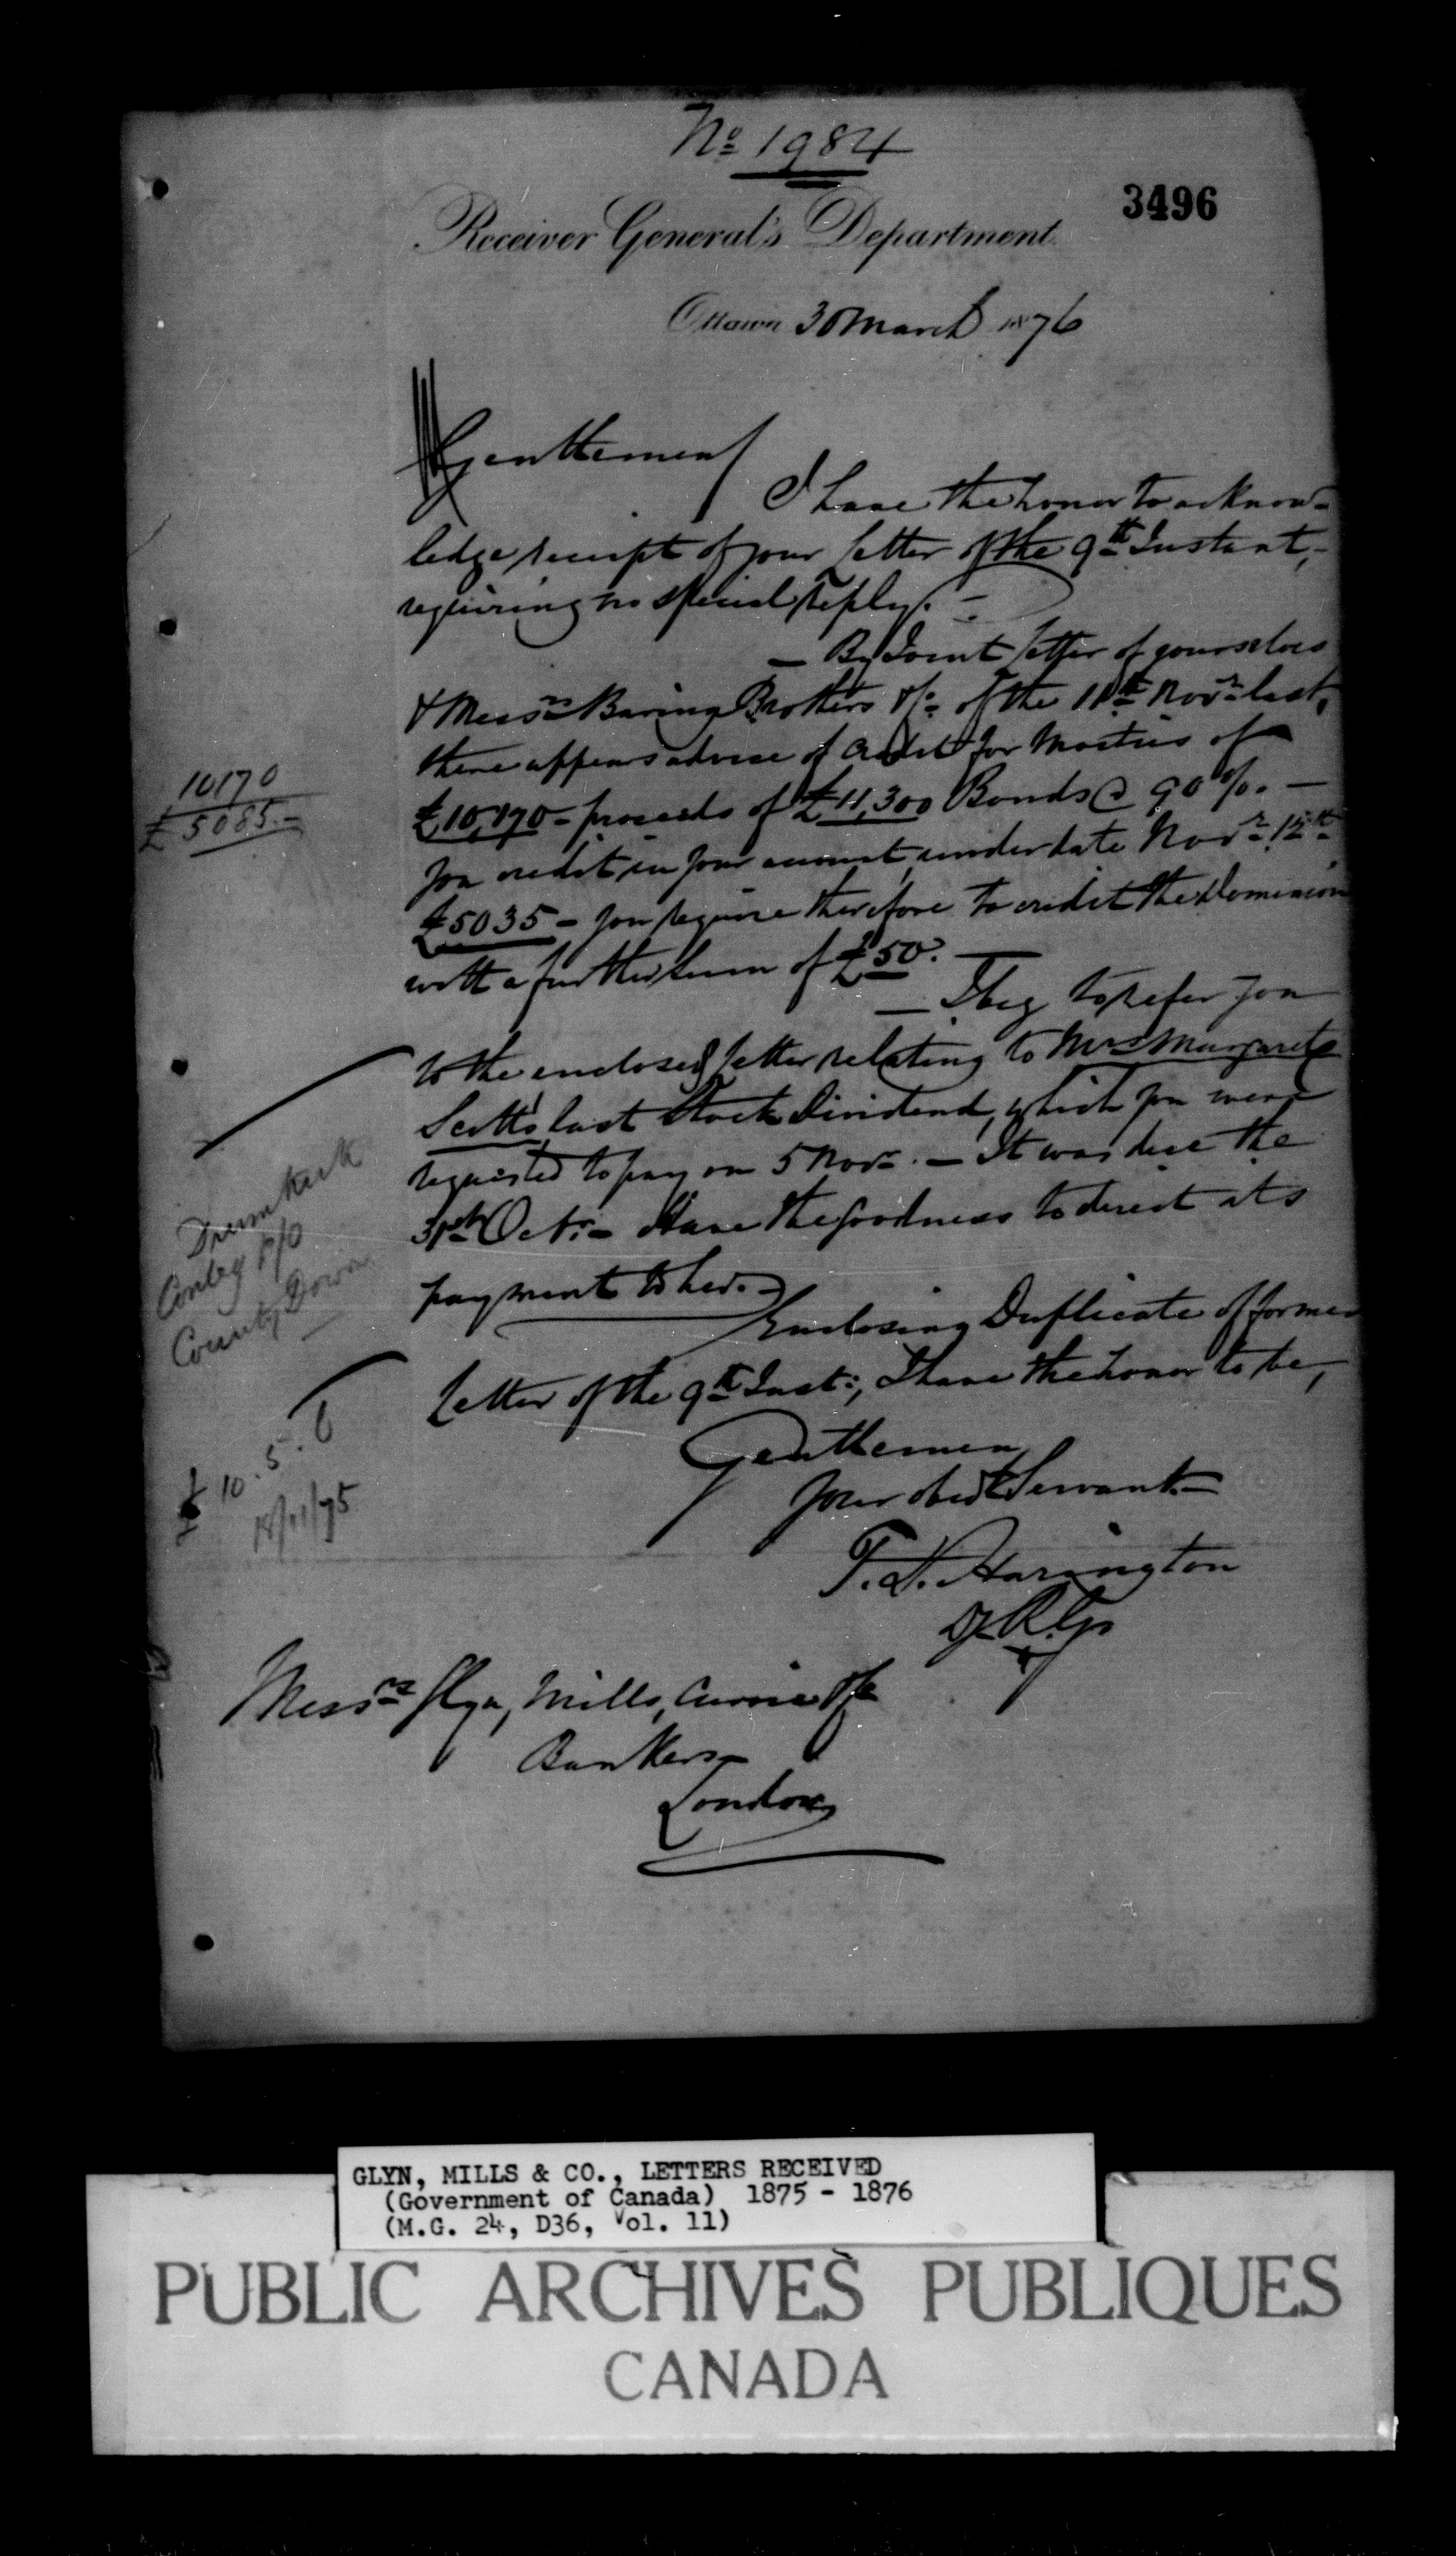 No 1984
3496
Receiver General's Department
Ottawa 30 March 1876
Gentlemen
I have the honor to acknow-
ledge receipt of your letter of the 9th Instant,-
requiring no special reply. -
- By Joint letter of yourselves
& Messrs Baring Brothers & Co of the 11th Novr last,
there appears advice of credit for Moities of
£10,170 - proceeds of £11,300 Bonds @ 90%. -
You credit in your account, under date Novr 12th
£5035 - you require therefore to credit the Dominion
with a further sum of £50. -
- I beg to refer you
to the enclosed letter relating to Mrs Margaret
Scott's last Stock Dividend, which you were
requested to pay on 5 Novr. - It was due the
31st Octr. - Have the goodness to direct its
payment to her. -
Enclosing Duplicate of former
Letter of the 9th Inst:, I have the honor to be,
Gentlemen
Your obedt Servant. -
T. D. Harington
Dy R. Gl
Messrs Glyn, Mills, Currie & Co
Bankers
London
10170
£5085. -
Drumkirk
P/O
County Down
£10.5.6
18/11/75
GLYN, MILLS & CO., LETTERS RECEIVED
(Government of Canada) 1875 - 1876
(M.G. 24, D36, Vol. 11)
PUBLIC ARCHIVES PUBLIQUES
CANADA